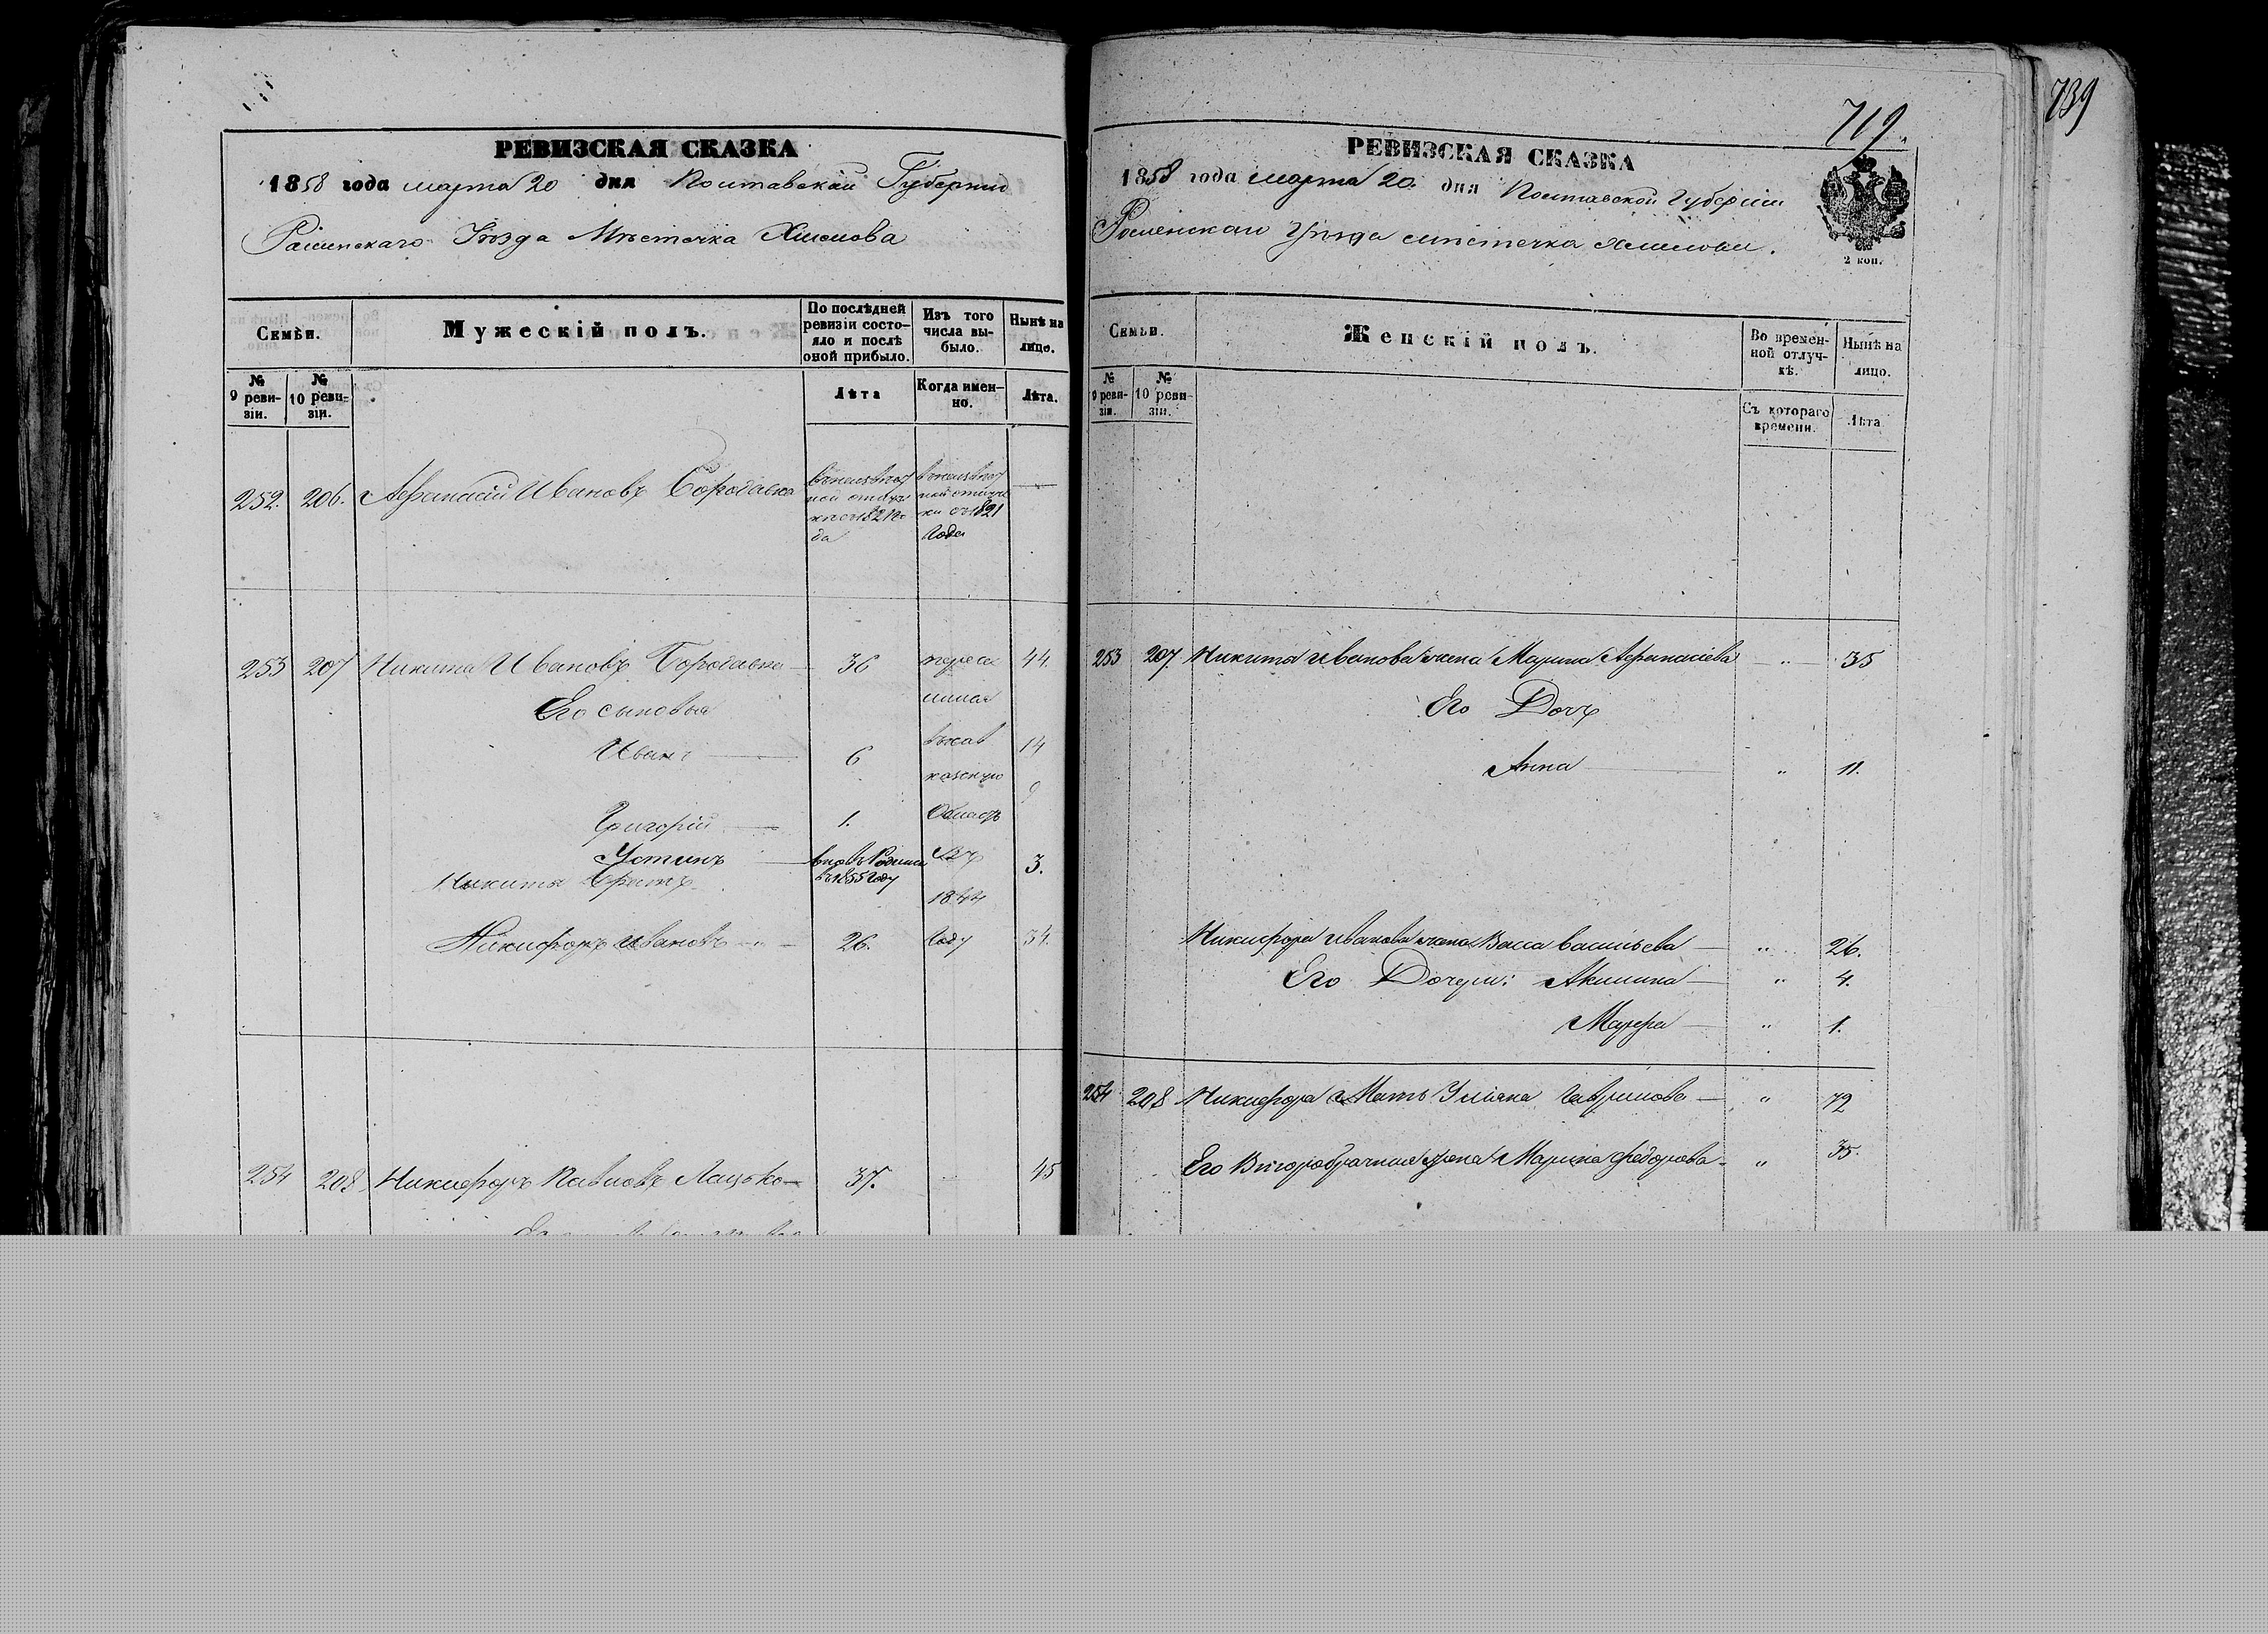 739
719.
РЕВИЗСКАЯ СКАЗКА
1858 года марта 20 дня Полтавской Губерніи
Роменскаго Уѣзда Мѣстечка Хмелова
Семьи.
Мужескій полъ.
По послѣдней ревизіи состояло и послѣ оной прибыло.
Изъ того числа выбыло.
Нынѣ на лицо.
№ 9 ревизіи.
№ 10 ревизіи.
Лѣта
Когда именно.
Лѣта.
252. 206. Афанасій Ивановъ Бородавка
въ неизвѣстной отлучкѣ съ 1821 года
въ неизвѣстной отлучки съ 1821 года
253 207 Никита Ивановъ Бородавка 36 44.
Его сыновья
Иванъ 6 14
Григорій 1. 9
Устинъ вновь Родился въ 1855 Году 3.
Никиты братъ
Никифоръ Ивановъ 26. 34.
въ кавказскую Область въ 1844 Году
254 208 Никифоръ Павловъ Лацько 37. 45
РЕВИЗСКАЯ СКАЗКА
1858 года марта 20. дня Полтавской Губерніи
Роменскаго Уѣзда мѣстечка Хмелова.
2 коп.
Семьи.
Женскій полъ.
Во временной отлучкѣ.
Нынѣ на лицо.
№ 9 ревизіи.
№ 10 ревизіи.
Съ котораго времени.
Лѣта
253 207 Никиты Иванова жена Марина Афанасіева " 35
Его Дочь
Анна " 11.
Никифора Иванова жена Васса Васильева " 26.
Его Дочери: Акилина " 4.
Мавра " 1.
254 208 Никифора Мать Уліяна Гаврилова " 72
Его Второбрачная жена Марина Федорова " 35.